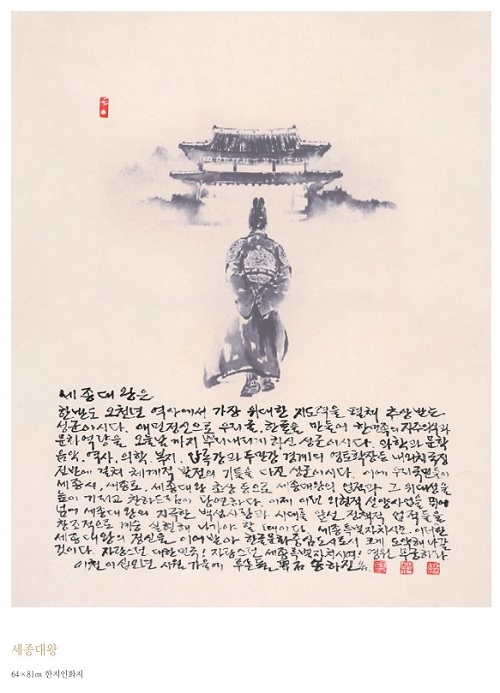 세종대왕은
한반도 오천년 역사에서 가장 위대한 지도력을 펼쳐 추앙받는
성군이시다. 애민정신으로 우리글, 한글을 만들어 한민족의 자주의식과
문화역량을 오늘날까지 뿌리내리게 하신 성군이시다. 과학과 문학
음악, 역사, 의학, 복지, 압록강과 두만강 경계의 영토확장등 내외치국정
전반에 걸쳐 체계적 발전의 기틀을 다진 성군이시다. 이에 우리국민들이
세종시, 세종로, 세종대왕 동상 등으로 세종대왕의 업적과 그 위대성을
높이 기리고 찬양하는 당연하다. 이제 이런 외형적 선양사업을 뛰어
넘어 세종대왕의 지극한 백성사랑과 시대를 앞선 정책적 업적들을
창조적으로 계승 실현해 나가야 할 때이다. 세종특별자치시는 이러한
세종대왕의 정신을 이어받아 한국문화중심도시로서 크게 도약해 나갈
것이다. 자랑스런 대한민국! 자랑스런 세종특별자치시여! 영원 무궁하라
이천이십오년 가을에
세종대왕
64×81㎝ 한지인화지